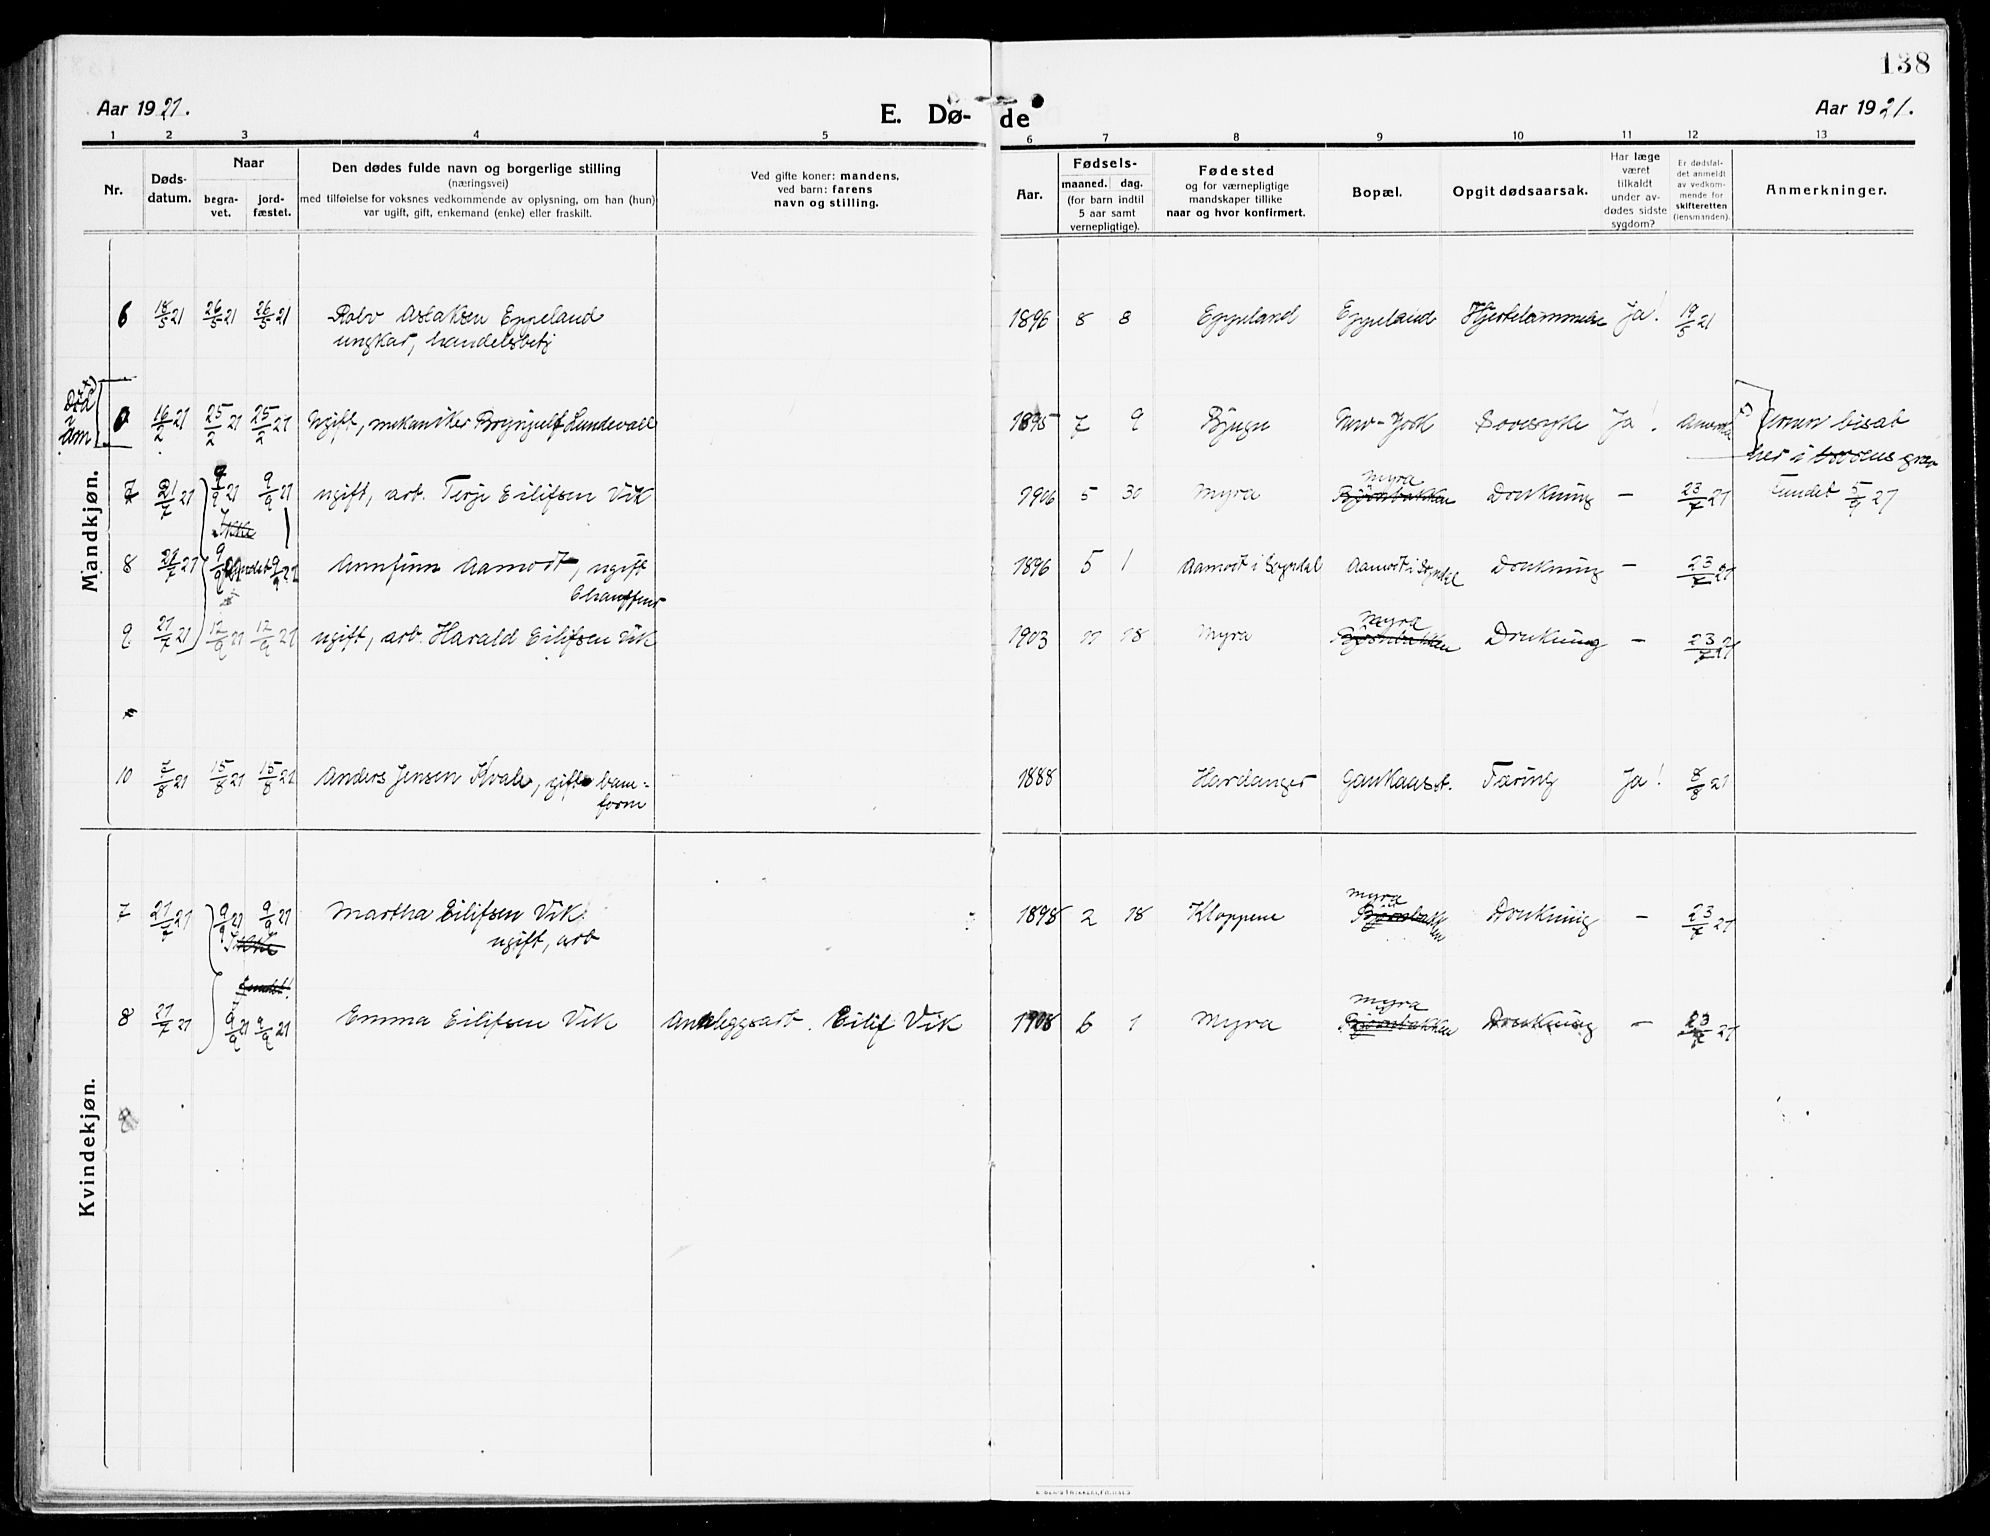 138
Aar 1921.
E. Dø-
de
Aar 1921.
1 2 3 4 5 6 7 8 9 10 11 12 13
Nr.
Døds-
datum.
Naar
begra-
vet.
jord-
fæstet.
Den dødes fulde navn og borgerlige stilling
(næringsvei)
med tilføielse for voksnes vedkommende av oplysning, om han (hun)
var ugift, gift, enkemand (enke) eller fraskilt.
Ved gifte koner: mandens,
ved barn: farens
navn og stilling.
Aar.
Fødsels-
maaned. dag.
(for barn indtil
5 aar samt
vernepligtige).
Fødested
og for værnepligtige
mandskaper tillike
naar og hvor konfirmert.
Bopæl.
Opgit dødsaarsak.
Har læge
været
tilkaldt
under av-
dødes sidste
sygdom?
Er dødsfal-
det anmeldt
av vedkom-
mende for
skifteretten
(lensmanden).
Anmerkninger.
Mandkjøn.
6 18/5 21 26/5 21 26/5 21 Rolv Aslaksen Eppeland 1896 8 8 Eppeland Eppeland Hjertelammelse Ja! 19/5 21
ungkar, handelsbetj
Død
i
Am
16/2 21 25/2 21 25/2 21 Ugift, mekaniker Bryngulf Lundevall 1895 7 9 Bjugn New-York Sovesyke Ja!
bisat
her i
7 21/7 21 9/9 21 9/9 21 ugift, arb. Terje Eilifsen Vik 1906 5 30 Myra Myra Bjørnbakken Drukning — 23/7 21 Fundet 5/9 21
Ikke
fundet
8 21/7 21 9/9 21 9/9 21 Arnfinn Aamodt, ugift 1896 5 1 Aamodt i Sogndal Aamodt i Sogndal Drukning — 23/7 21
Chauffeur
9 21/7 21 12/9 21 12/9 21 ugift, arb. Harald Eilifsen Vik 1903 11 18 Myra Myra Bjørnbakken Drukning — 23/7 21
10 7/8 21 15/8 21 15/8 21 Anders Jensen Kvale, gift bane- 1888 Hardanger Gaukaasst. Tæring Ja! 8/8 21
form
Kvindekjøn.
7 21/7 21 9/9 21 9/9 21 Martha Eilifsen Vik 1898 2 18 Kloppene Myra Bjørnbakken Drukning — 23/7 21
Ikke
ugift, arb
fundet!
8 21/7 21 9/9 21 9/9 21 Emma Eilifsen Vik Anleggsarb. Eilif Vik 1908 6 1 Myra Myra Bjørnbakken Drukning — 23/7 21
8